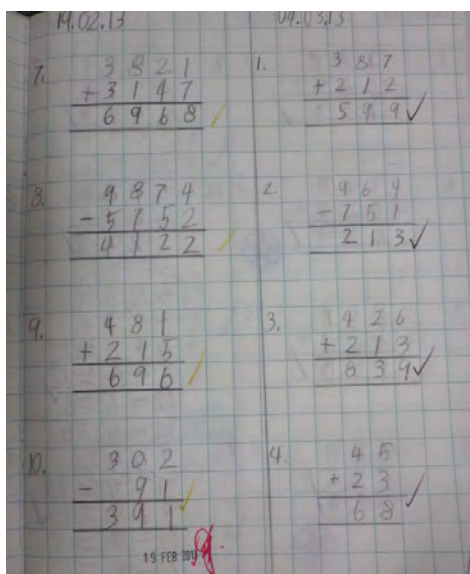 14.02.13
7.
3821
+ 3147
6968
8.
9874
- 5752
4122
9.
481
+ 215
696
10.
302
- 91
391
19 FEB
04.03.13
1.
387
+ 212
599
2.
964
- 751
213
3.
426
+ 213
639
4.
45
+ 23
68